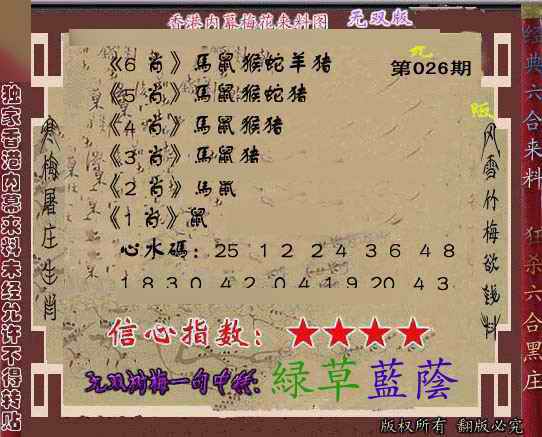 香港内幕梅花来料图 无双版
第026期
《6 肖》馬鼠猴蛇羊猪
《5 肖》馬鼠猴蛇猪
《4 肖》馬鼠猴猪
《3 肖》馬鼠猪
《2 肖》馬鼠
《1 肖》鼠
心水碼: 25 12 24 36 48
18 30 42 04 19 20 43
信心指数: ★★★★
无双湖梅一句中特:
綠草藍蔭
版权所有 翻版必究
独家香港内幕来料未经允许不得转贴
寒梅屠庄生肖
风雪竹梅欲钱料
经典六合来料
狂杀六合黑庄